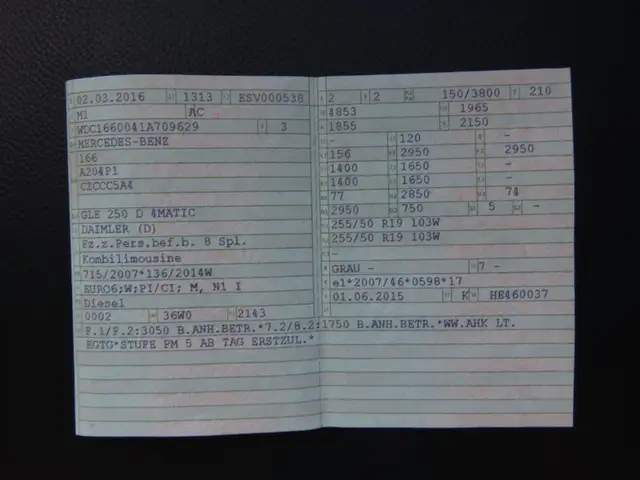 02.03.2016 1313 ESV000538
M1 AC
WDC1660041A709629 3
MERCEDES-BENZ
166
A204P1
CZCCC5A4
GLE 250 D 4MATIC
DAIMLER (D)
Fz.z.Pers.bef.b. 8 Spl.
Kombilimousine
715/2007*136/2014W
EURO6;W;PI/CI; M, N1 I
Diesel
0002 36W0 2143
2 2 150/3800 210
4853 1965
1855 2150
- 120 -
156 2950 2950
1400 1650 -
1400 1650 -
77 2850 74
2950 750 5 -
255/50 R19 103W
255/50 R19 103W
-
GRAU - 7 -
e1*2007/46*0598*17
01.06.2015 K HE460037
F.1/F.2:3050 B.ANH.BETR.*7.2/8.2:1750 B.ANH.BETR.*WW.AHK LT.
EGTG*STUFE PM 5 AB TAG ERSTZUL.*